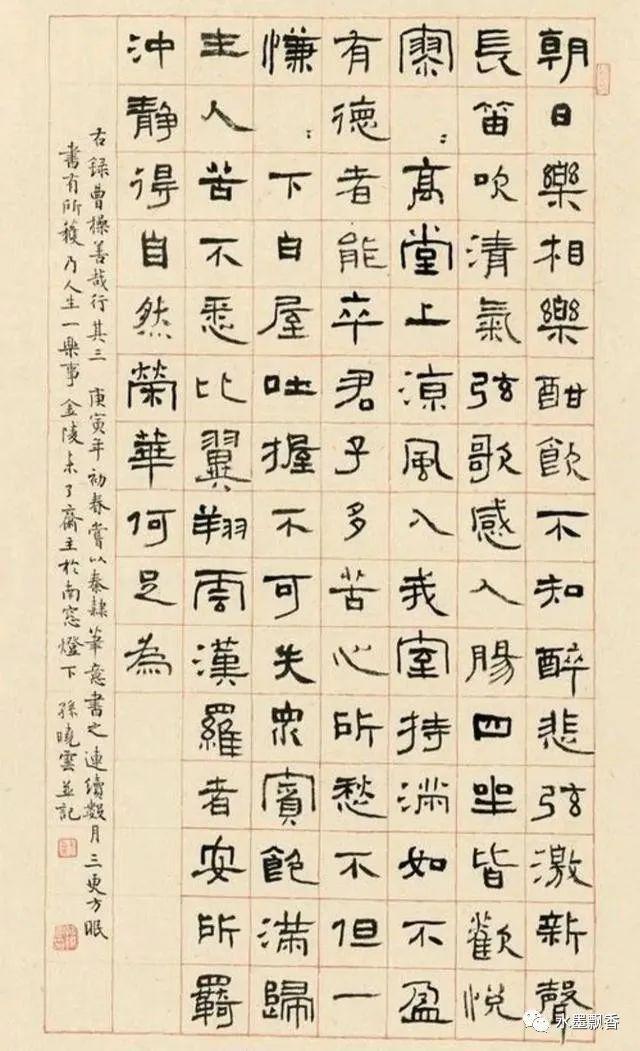 朝日樂相樂酣飲不知醉悲弦激新聲
長笛吹清氣弦歌感人腸四坐皆歡悅
寥〻高堂上涼風入我室持滿如不盈
有德者能卒君子多苦心所愁不但一
慊〻下白屋吐握不可失眾賓飽滿歸
主人苦不悉比翼翔雲漢羅者安所羈
沖靜得自然榮華何足為
右錄曹操善哉行其三 庚寅年初春嘗以秦隸筆意書之連續數月三更方眠
書有所穫乃人生一樂事 金陵未了齋主於南窓燈下 孫曉雲並記
水墨飘香